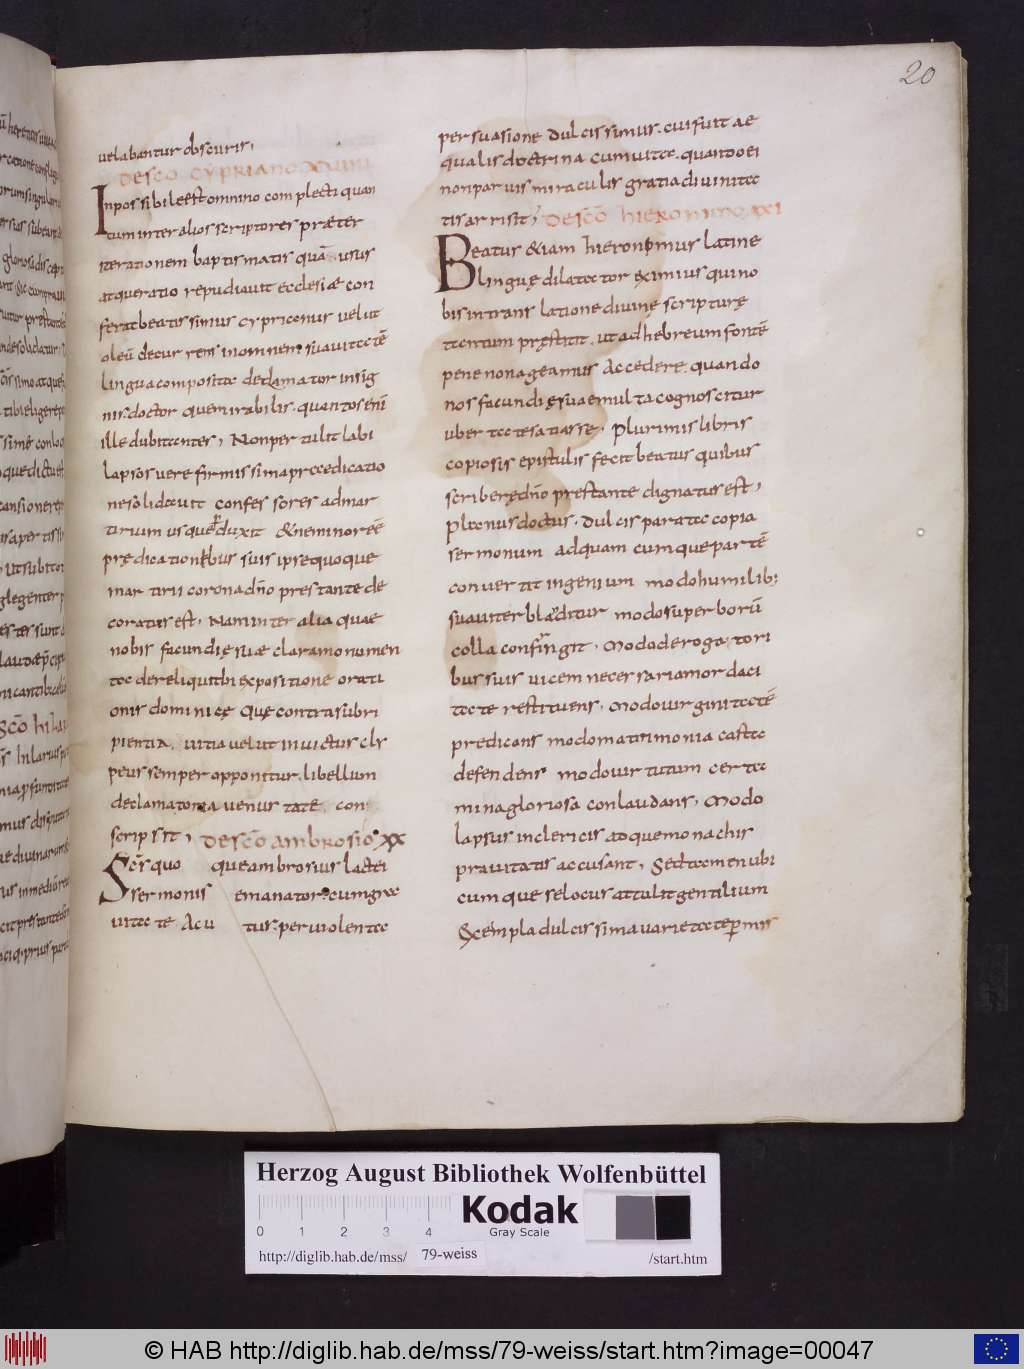 20
velabantur obscuris;
DESCO CYPRIANO XVIIII
Inpossibile est omnino complecti quan
tum inter alios scriptores praeter
iterationem baptismatis quã usus
atque ratio repudiavit ecclesiae con
ferat beatissimus cyprianus velut
oleũ decurrens in omnem suavitatẽ
lingua composita declamator insig
nis doctor que mirabilis. quantos enĩ
ille dubitantes, Non pertulit labi
lapsos vere firmissima praedicatio
ne solidavit confessores ad mar
tirium usque duxit & ne minor eẽ
prędicationibus suis ipse quoque
martirii corona dño prestante de
coratus est, Nam inter alia quae
nobis facundię suae clara monomen
ta dereliquit libi expositione orati
onis dominicę Quę contra subri
pientia vitia velut invictus cly
peus semper opponitur. libellum
declamatoria venustate con
scripsit, DESCO AMBROSIO XX
Scs quo que ambrosius lactei
sermonis emanator cum gra
vitate Acu tus. per violenta
persuasione dulcissimus. cui fuit ae
qualis doctrina cum vita. quando ei
non parvis miraculis gratia divinita
tis arrisit, DESCO HIERONIMO XXI
Beatus &iam hieronimus latine
linguę dilatator eximius qui no
bis in translatione divinę scripturę
tantum pręstitit. ut ad hebreum fontẽ
pene non ageamus Accedere. quando
nos facundię sua e multa cognoscitur
ubertate satiasse, Plurimis libris
copiosis epistulis fecit beatus quibus
scriberę dño prestante dignatus est,
Planus doctus, dulcis parata copia
sermonum ad quamcumque partẽ
convertit ingenium modo humilib;
suaviter blãditur modo superborũ
colla confringit, Modo deroga tori
bus suis vicem necessaria mordaci
tate restituens, Modo virginitatẽ
predicans modo matrimonia casta
defendens modo virtutum certa
mina gloriosa conlaudans, Modo
lapsus in clericis atque monachis
pravitatis accusant, Sed tamen ubi
cum que se locus attulit gentilium
Exempla dulcissima varietate p̱mis
Herzog August Bibliothek Wolfenbüttel
0 1 2 3 4
Kodak
Gray Scale
http://diglib.hab.de/mss/ 79-weiss /start.htm
© HAB http://diglib.hab.de/mss/79-weiss/start.htm?image=00047